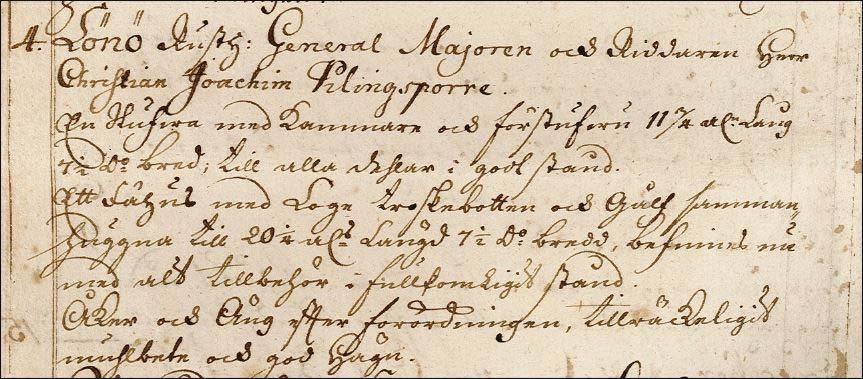 4. Lönö Rusth: General Majoren och Riddaren Herr
Christian Joachim Klingsporre.
En Stufwa med Kammare och förstufwu 11 3/4 al: Lång
7 1/2 do bred; till alla dehlar i godt stand.
Ett Fähus med Loge troskebotten och Gulf samman-
huggna till 20 1/4 als Längd 7 1/2 do bredd, befinnes nu
med alt tillbehör i fullkomligit stand.
Åker och Äng effter förordningen, tillräckeligit
muhlbete och god hägn.